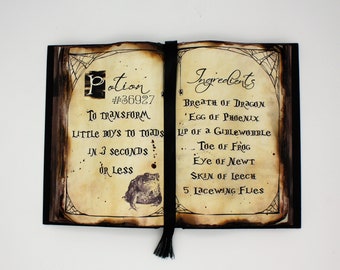 Potion
#36927
To transform
little boys to toads
in 3 seconds
or less
Ingredients
Breath of Dragon
Egg of Phoenix
Lip of a Girlewobble
Toe of Frog
Eye of Newt
Skin of Leech
5 Lacewing Flies